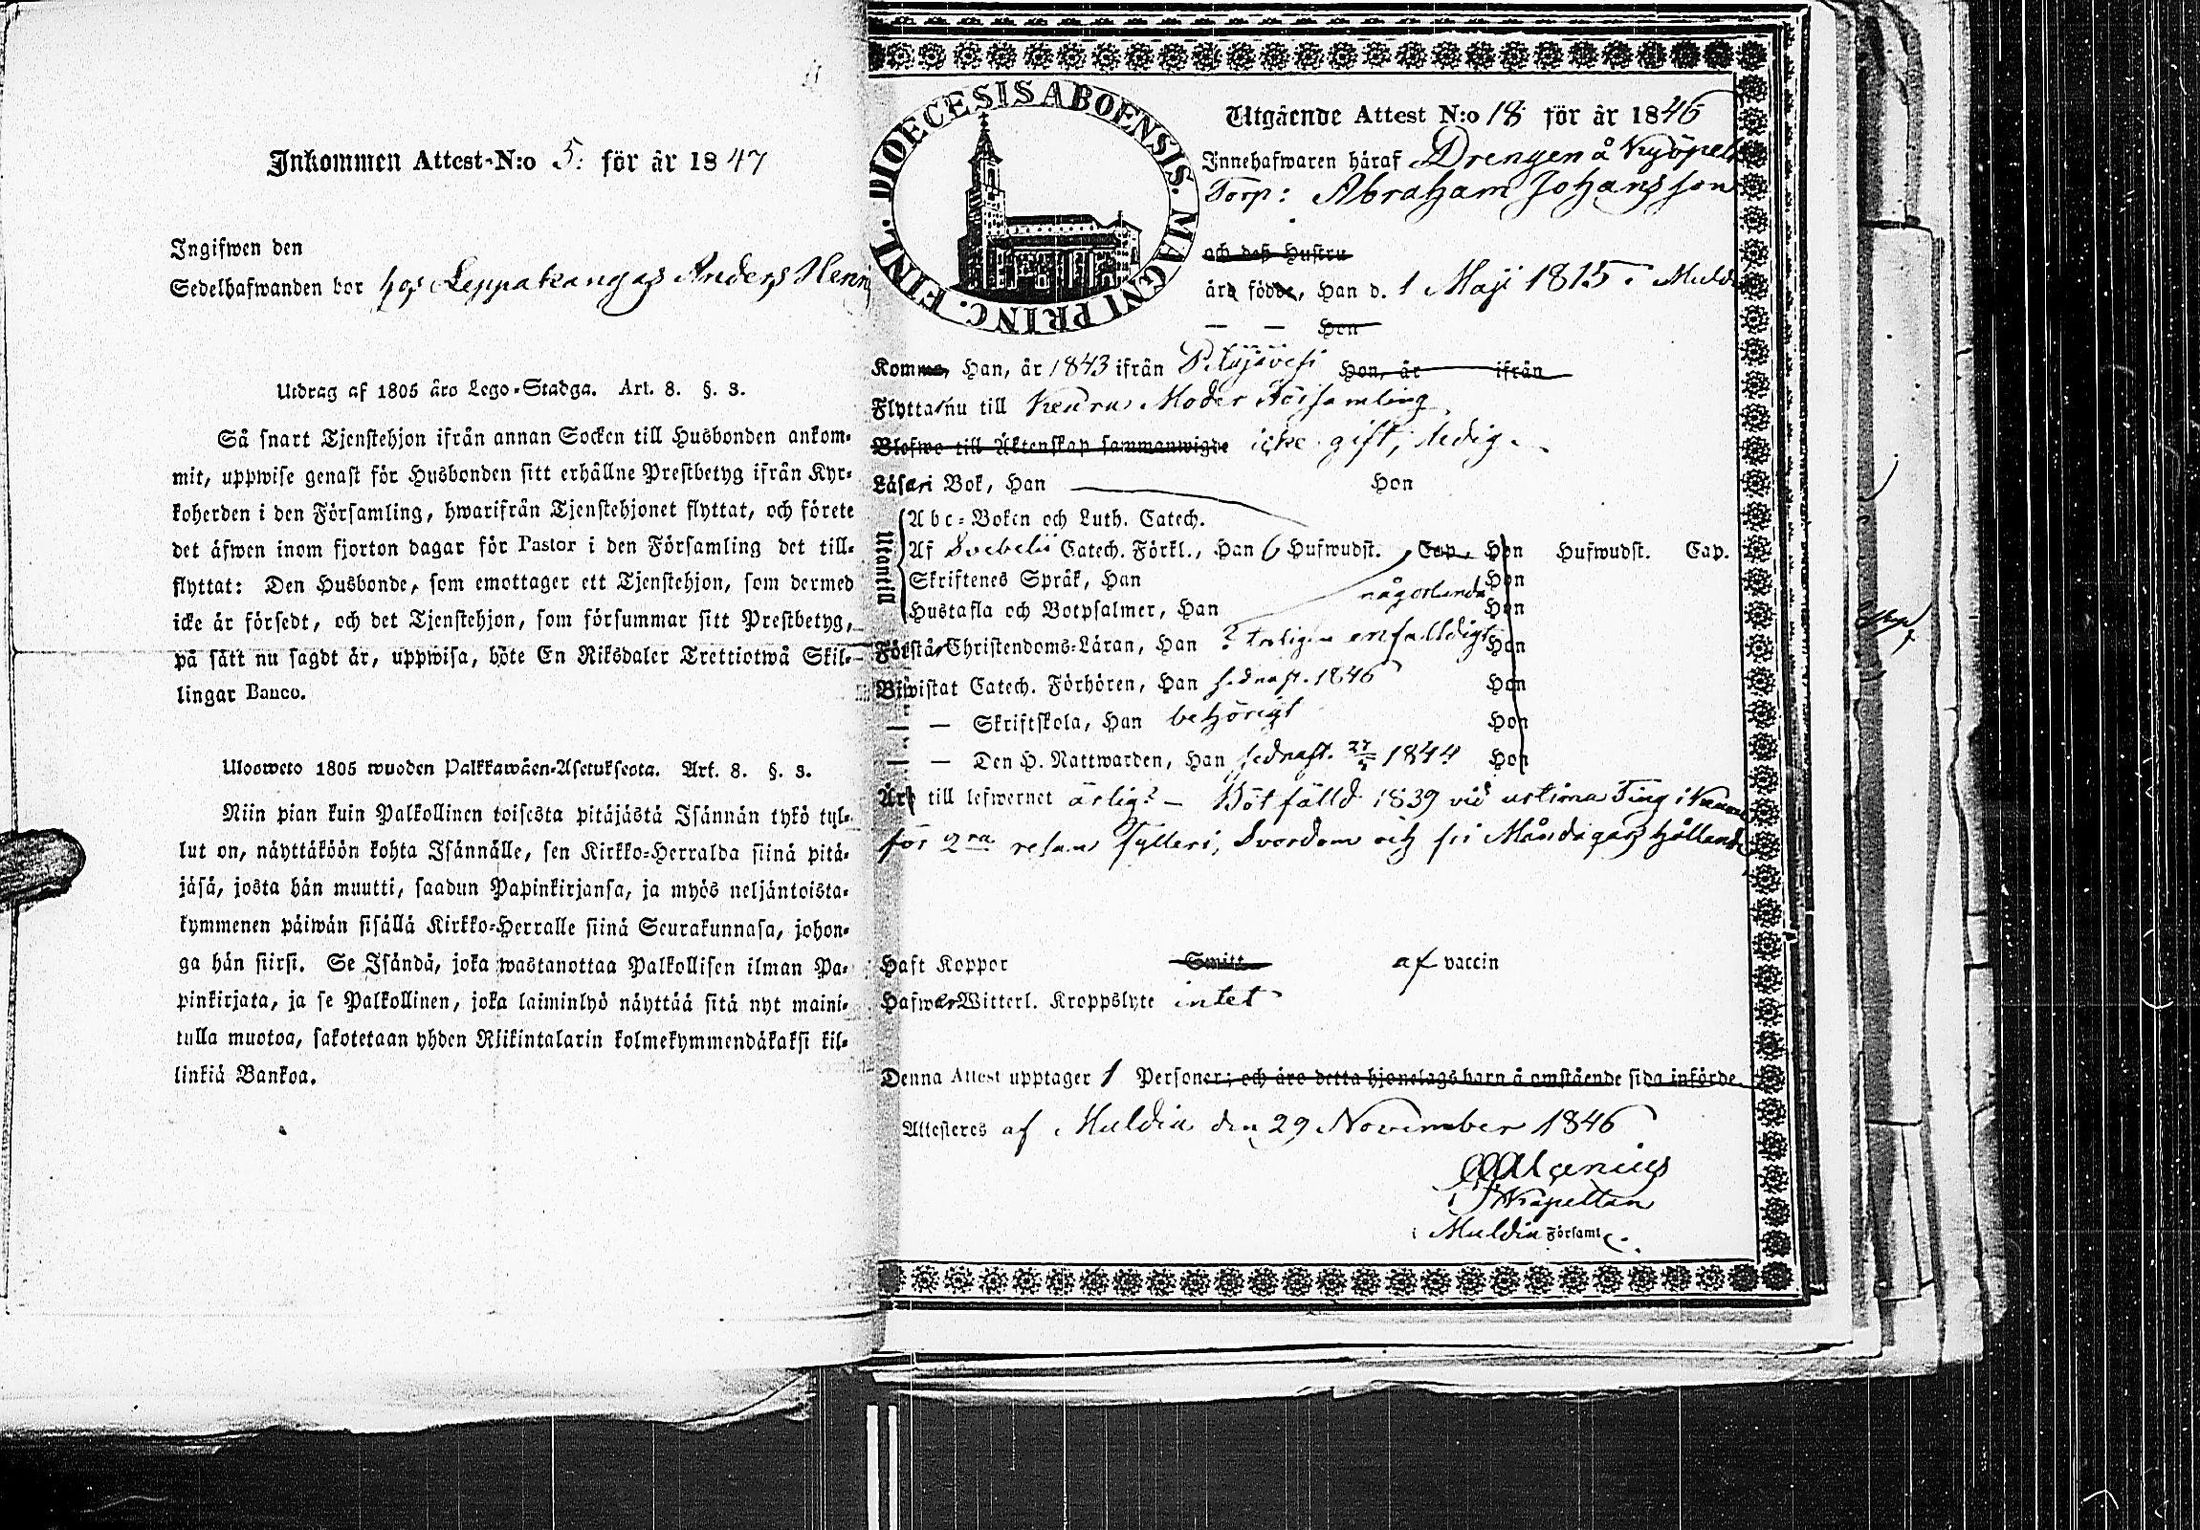 Inkommen Attest-N:o 5. för år 1847
Ingifwen den
Sedelhafwanden bor hos Leppakangas Anders Henr
Utdrag af 1805 års Lego-Stadga. Art. 8. §. 3.
Så snart Tjenstehjon ifrån annan Socken till Husbonden ankom-
mit, uppwise genast för Husbonden sitt erhållne Prestbetyg ifrån Kyr-
koherden i den Församling, hwarifrån Tjenstehjonet flyttat, och förete
det äfwen inom fjorton dagar för Pastor i den Församling det till-
flyttat: Den Husbonde, som emottager ett Tjenstehjon, som dermed
icke är försedt, och det Tjenstehjon, som försummar sitt Prestbetyg,
på sätt nu sagdt är, uppwisa, böte En Riksdaler Trettiotwå Skil-
lingar Banco.
Ulosweto 1805 wuoden Palkkawäen-Asetuksesta. Art. 8. §. 3.
Niin pian kuin Palkollinen toisesta pitäjästä Isännän tykö tul-
lut on, näyttäköön kohta Isännälle, sen Kirkko-Herralda siinä pitä-
jäsä, josta hän muutti, saadun Papinkirjansa, ja myös neljäntoista-
kymmenen päiwän sisällä Kirkko-Herralle siinä Seurakunnasa, johon-
ga hän siirsi. Se Isändä, joka wastanottaa Palkollisen ilman Pa-
pinkirjata, ja se Palkollinen, joka laiminlyö näyttää sitä nyt maini-
tulla muotoa, sakotetaan yhden Riikintalarin kolmekymmendäkaksi kil-
linkiä Bankoa.
DIOECESIS ABOENSIS. MAGNI PRINC. FINL.
Utgående Attest N:o 18 för år 1846
Innehafwaren häraf Drengen å
Torp: Abraham Johansson
och dess Hustru
äro födde, Han d. 1 Maji 1815 i Muld
— — Hon
Komma, Han, år 1843 ifrån Pihlajavesi Hon, år ifrån
Flytta nu till Keuru Moder Församling
Blefwo till Äktenskap sammanwigde icke gift, ledig.
Läsa i Bok, Han Hon
Utantill
Abc-Boken och Luth. Catech.
Af Svebelii Catech. Förkl., Han 6 Hufwudst. Cap. Hon Hufwudst. Cap.
Skriftenes Språk, Han någorlunda Hon
Hustafla och Botpsalmer, Han Hon
Förstå Christendoms-Läran, Han enfalldigt Hon
Biwistat Catech. Förhören, Han sednast. 1846 Hon
— — Skriftskola, Han behörigt Hon
— — Den H. Nattwarden, Han sednast. 1844 Hon
Äro till lefwernet ärlig? — Bötfälld 1839 vid Ting i
för 2ra resan Fylleri, Svordom och
Haft Koppor Smitt af vaccin
Hafwer Witterl. Kroppslyte intet
Denna Attest upptager 1 Personer; och äro detta hjonelags barn å omstående sida införde
Attesteres af Muldia den 29 November 1846
Kapellan
i Muldia Församl.